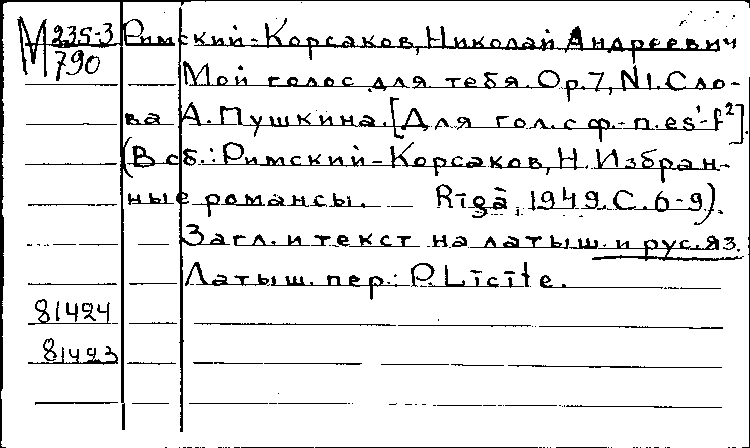 М 235-3 Римский-Корсаков, Николай Андреевич
790
Мой голос для тебя. Op.7, N1. Сло-
ва А. Пушкина. [Для гол. с ф.-п. es'-f²].
(В сб.: Римский-Корсаков, Н. Избран-
ные романсы. — Rīgā, 1949. С. 6-9).
Загл. и текст на латыш. и рус. яз.
Латыш. пер.: P. Līcīte.
81424
81423